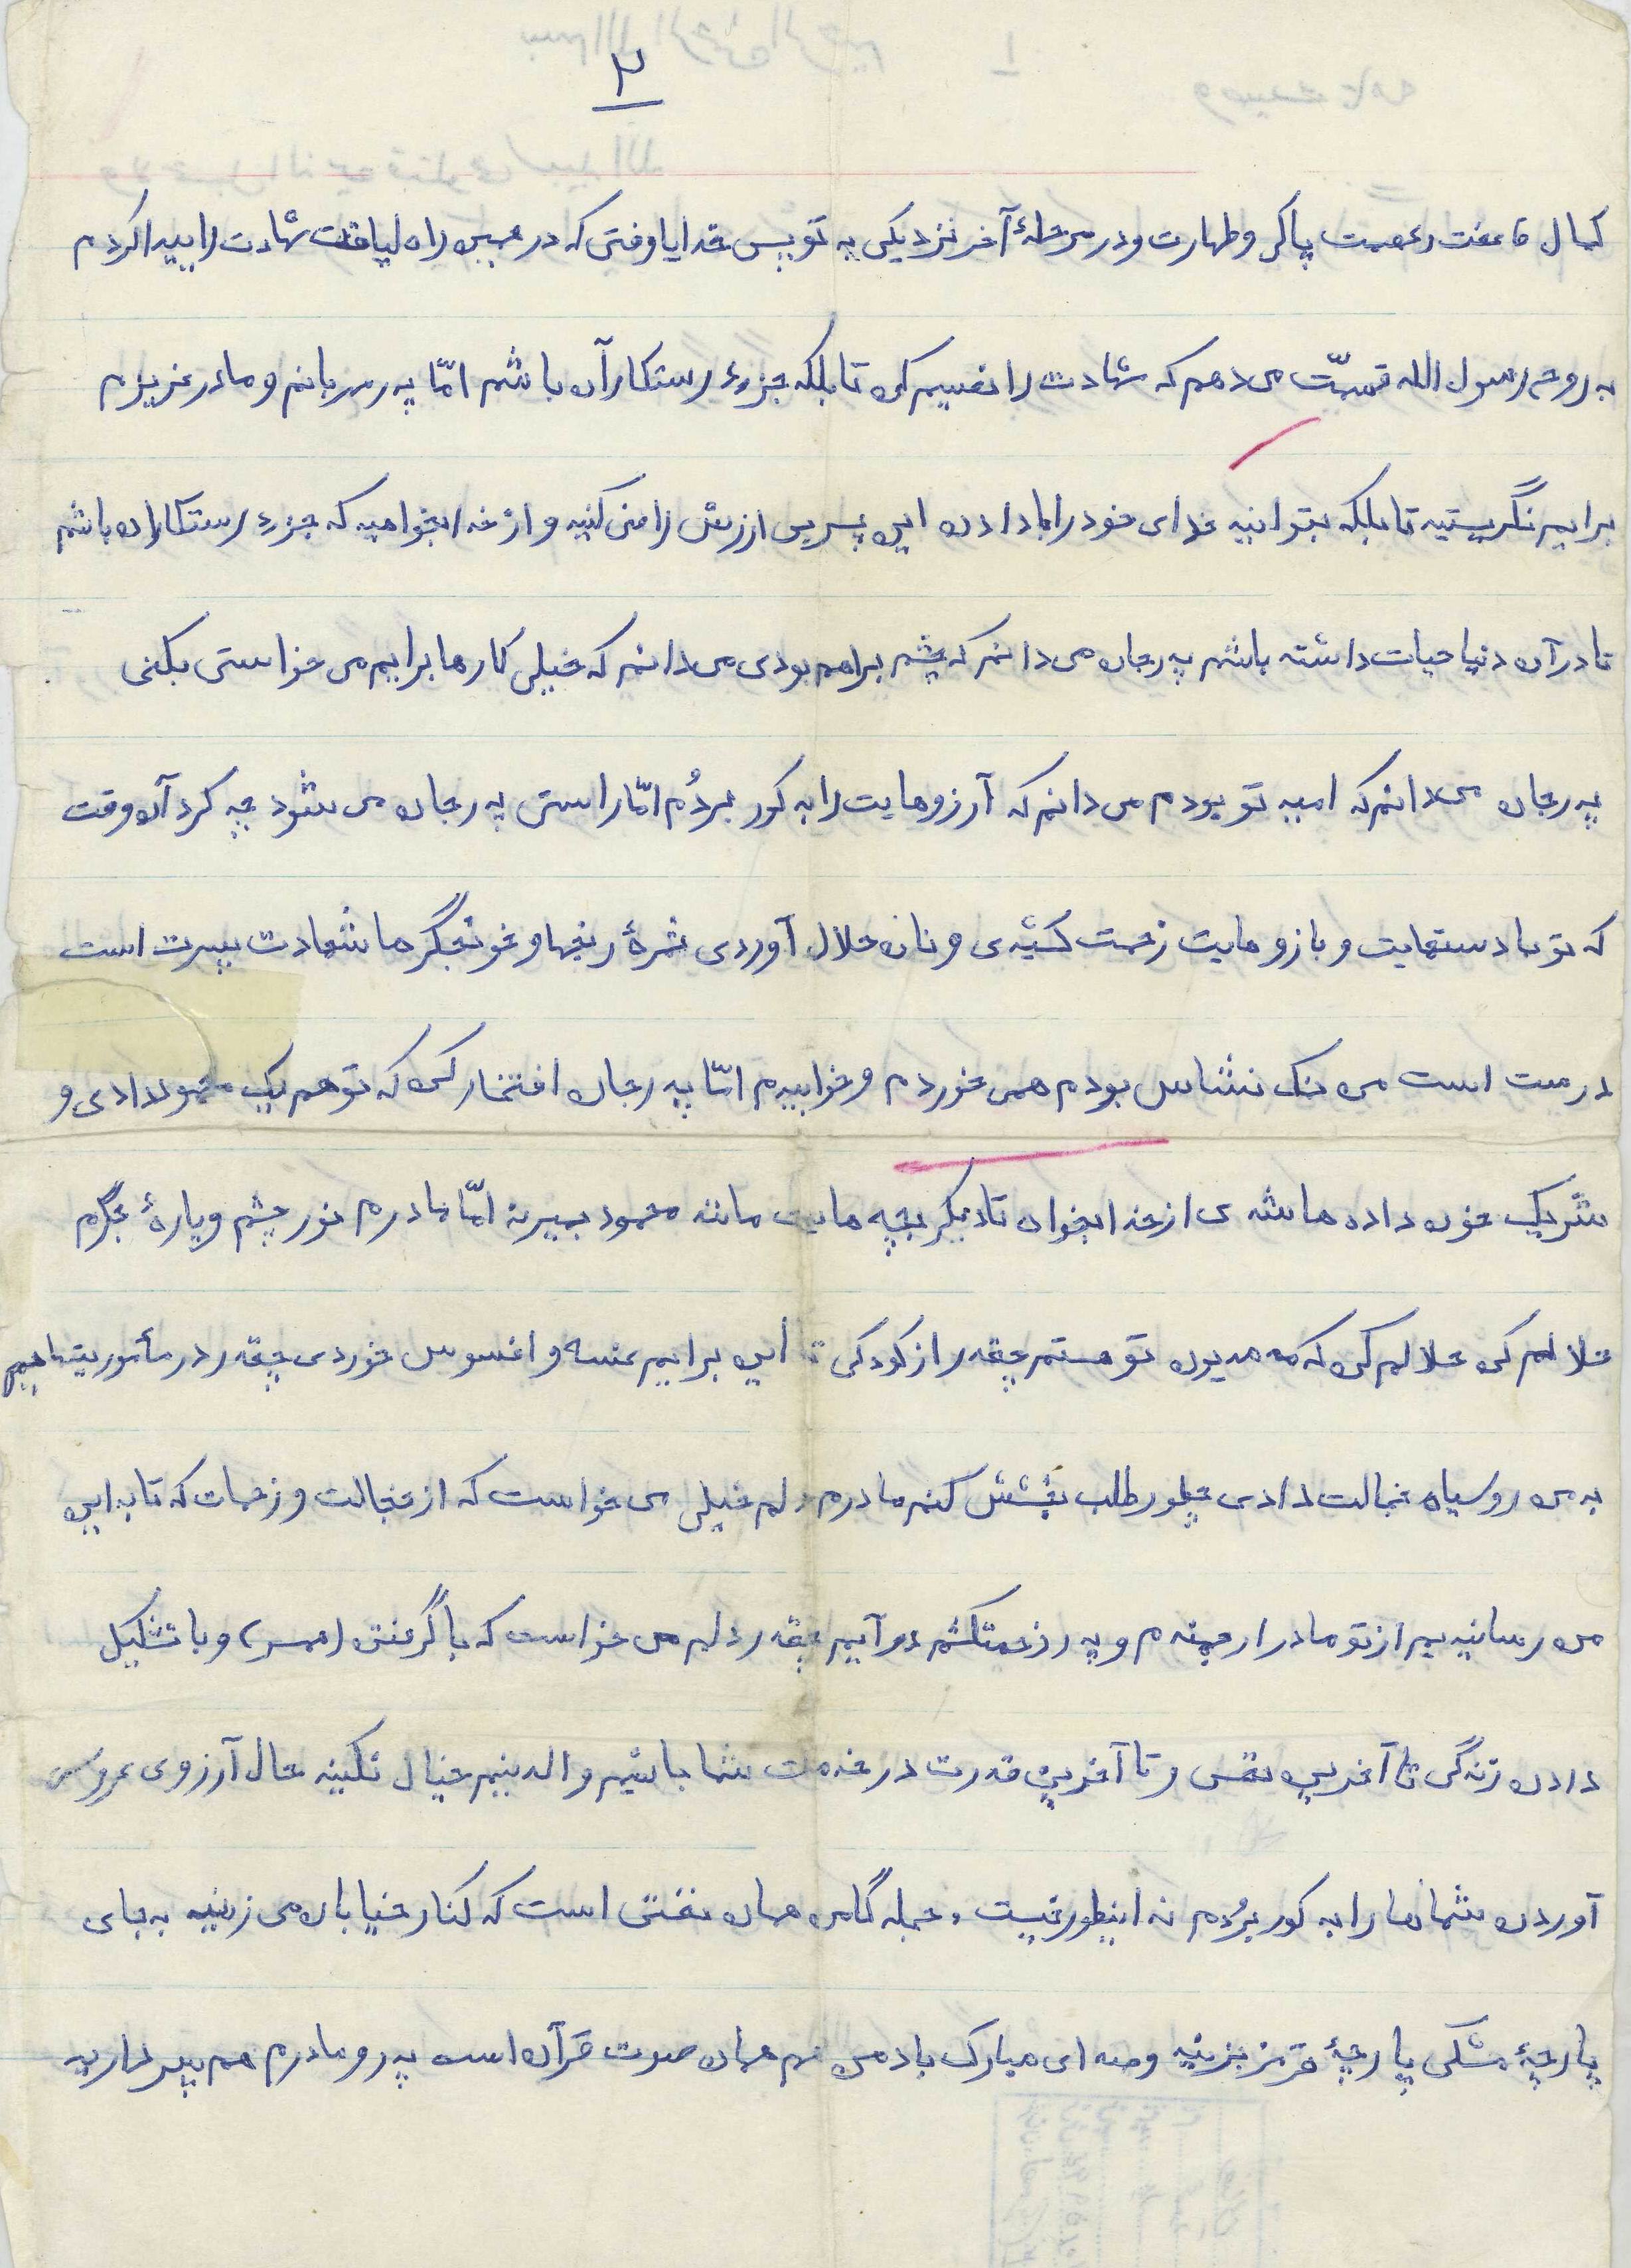 ۲
کمال عفت و عصمت پاکی و طهارت و در مرحلهٔ آخر نزدیکی به تو پس خدایا وقتی که در همین راه لیاقت شهادت را پیدا کردم
به روح رسول الله قسمت می دهم که شهادت را نصیبم کن تا بلکه جزء رستگاران باشم امّا پدر مهربانم و مادر عزیزم
برایم نگریستید تا بلکه بتوانید خدای خود را با دادن این پسر بی ارزش راضی کنید و از خدا بخواهید که جزء رستگاران باشم
تا در آن دنیا حیات داشته باشم پدر جان می دانم که چشم براهم بودی می دانم که خیلی کارها برایم می خواستی بکنی
پدر جان می دانم که امید تو بودم می دانم که آرزوهایت را به گور بردُم امّا راستی پدر جان می شود چه کرد آن وقت
که تو با دستهایت و بازوهایت زحمت کشیدی و نان حلال آوردی ثمرهٔ رنجها و خونجگرها شهادت پسرت است
درست است من نمک نشناس بودم همی خوردم و خوابیدم امّا پدر جان افتخار کن که تو هم یک محمود دادی و
شریک خون داده ها شدی از خدا بخواه تا دیگر بچه هایت مانند محمود بمیرند امّا مادرم نور چشم و پارهٔ جگرم
حلالم کن حلالم کن که مدیون تو هستم چقدر از کودکی تا این برایم غصه و افسوس خوردی چقدر در مأموریتهایم
به من روسیاه خجالت دادی چطور طلب بخشش کنم مادرم دلم خیلی می خواست که از خجالت و زحمات که تا به این
من رسانیدیم از تو مادر ارجمندم و پدر زحمتکشم در آیم چقدر دلم می خواست که با گرفتن (همسر) و با تشکیل
دادن زندگی تا آخرین نفس و تا آخرین قدرت در خدمت شما باشیم والدینم خیال نکنید حال آرزوی عروسی
آوردن شماها را به گور بُردم نه اینطور نیست، حجله گاه من همان نفتی است که کنار خیابان می زنید به جای
پارچهٔ مشکی پارچهٔ قرمز بزنید و صدای مبارک باد من هم همان صوت قرآن است پدر و مادرم هم پسر دارید